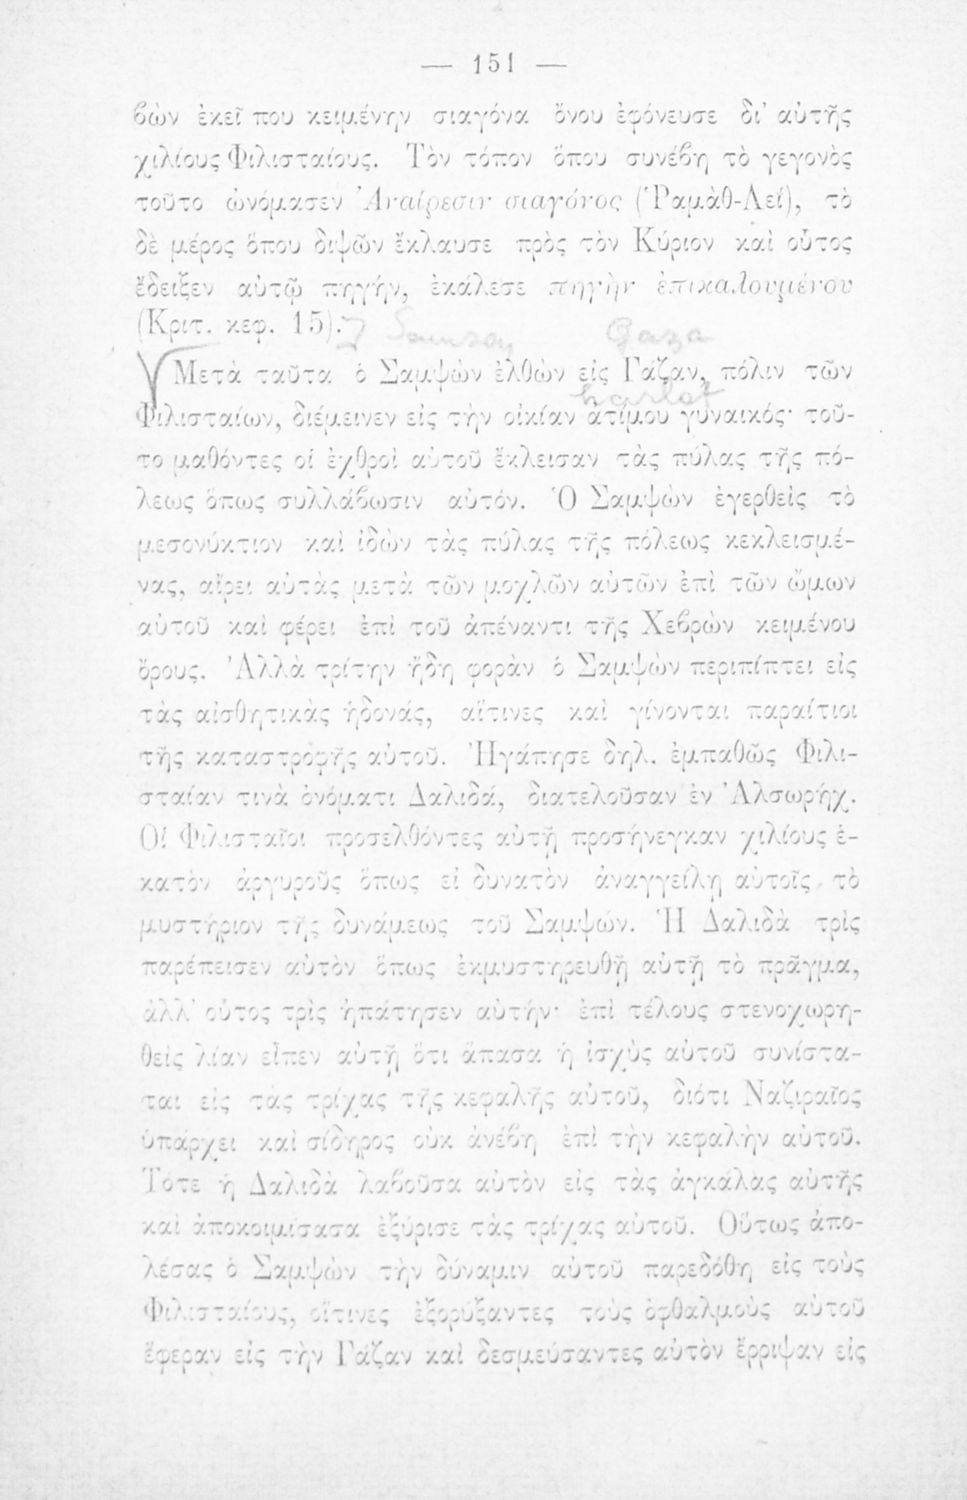 — 151 —
βὼν ἐκεῖ που κειμένην σιαγόνα ὄνου ἐφόνευσε δι' αὐτῆς
χιλίους Φιλισταίους. Τὸν τόπον ὅπου συνέβη τὸ γεγονὸς
τοῦτο ὠνόμασεν Ἀναίρεσιν σιαγόνος (Ῥαμὰθ-Λεΐ), τὸ
δὲ μέρος ὅπου διψῶν ἔκλαυσε πρὸς τὸν Κύριον καὶ οὗτος
ἔδειξεν αὐτῷ πηγήν, ἐκάλεσε πηγὴν ἐπικαλουμένου
(Κριτ. κεφ. 15).
Samson Gaza
Μετὰ ταῦτα ὁ Σαμψὼν ἐλθὼν εἰς Γάζαν, πόλιν τῶν
harlot
Φιλισταίων, διέμεινεν εἰς τὴν οἰκίαν ἀτίμου γυναικός· τοῦ-
το μαθόντες οἱ ἐχθροὶ αὐτοῦ ἔκλεισαν τὰς πύλας τῆς πό-
λεως ὅπως συλλάβωσιν αὐτόν. Ὁ Σαμψὼν ἐγερθεὶς τὸ
μεσονύκτιον καὶ ἰδὼν τὰς πύλας τῆς πόλεως κεκλεισμέ-
νας, αἴρει αὐτὰς μετὰ τῶν μοχλῶν αὐτῶν ἐπὶ τῶν ὤμων
αὐτοῦ καὶ φέρει ἐπὶ τοῦ ἀπέναντι τῆς Χεβρὼν κειμένου
ὄρους. Ἀλλὰ τρίτην ἤδη φορὰν ὁ Σαμψὼν περιπίπτει εἰς
τὰς αἰσθητικὰς ἡδονάς, αἵτινες καὶ γίνονται παραίτιοι
τῆς καταστροφῆς αὐτοῦ. Ἠγάπησε δηλ. ἐμπαθῶς Φιλι-
σταίαν τινὰ ὀνόματι Δαλιδά, διατελοῦσαν ἐν Ἀλσωρήχ.
Οἱ Φιλισταῖοι προσελθόντες αὐτῇ προσήνεγκαν χιλίους ἑ-
κατὸν ἀργυροῦς ὅπως εἰ δυνατὸν ἀναγγείλῃ αὐτοῖς τὸ
μυστήριον τῆς δυνάμεως τοῦ Σαμψών. Ἡ Δαλιδὰ τρὶς
παρέπεισεν αὐτὸν ὅπως ἐκμυστηρευθῇ αὐτῇ τὸ πρᾶγμα,
ἀλλ' οὗτος τρὶς ἠπάτησεν αὐτήν· ἐπὶ τέλους στενοχωρη-
θεὶς λίαν εἶπεν αὐτῇ ὅτι ἅπασα ἡ ἰσχὺς αὐτοῦ συνίστα-
ται εἰς τὰς τρίχας τῆς κεφαλῆς αὐτοῦ, διότι Ναζιραῖος
ὑπάρχει καὶ σίδηρος οὐκ ἀνέβη ἐπὶ τὴν κεφαλὴν αὐτοῦ.
Τότε ἡ Δαλιδὰ λαβοῦσα αὐτὸν εἰς τὰς ἀγκάλας αὐτῆς
καὶ ἀποκοιμίσασα ἐξύρισε τὰς τρίχας αὐτοῦ. Οὕτως ἀπο-
λέσας ὁ Σαμψὼν τὴν δύναμιν αὐτοῦ παρεδόθη εἰς τοὺς
Φιλισταίους, οἵτινες ἐξορύξαντες τοὺς ὀφθαλμοὺς αὐτοῦ
ἔφεραν εἰς τὴν Γάζαν καὶ δεσμεύσαντες αὐτὸν ἔρριψαν εἰς